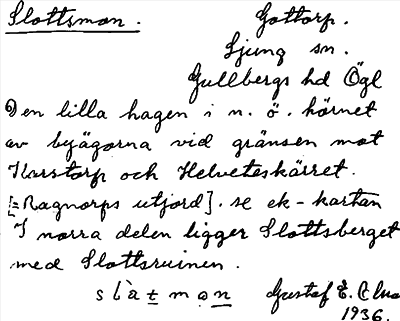 Slottsmon.
Gottorp.
Ljung sn.
Gullbergs hd Ögl
Den lilla hagen i n. ö. hörnet
av byägorna vid gränsen mot
Karstorp och Helveteskärret.
[= Ragnorps utjord]. se ek-kartan
I norra delen ligger Slottsberget
med Slottsruinen.
slàtmon Gustaf E.
1936.